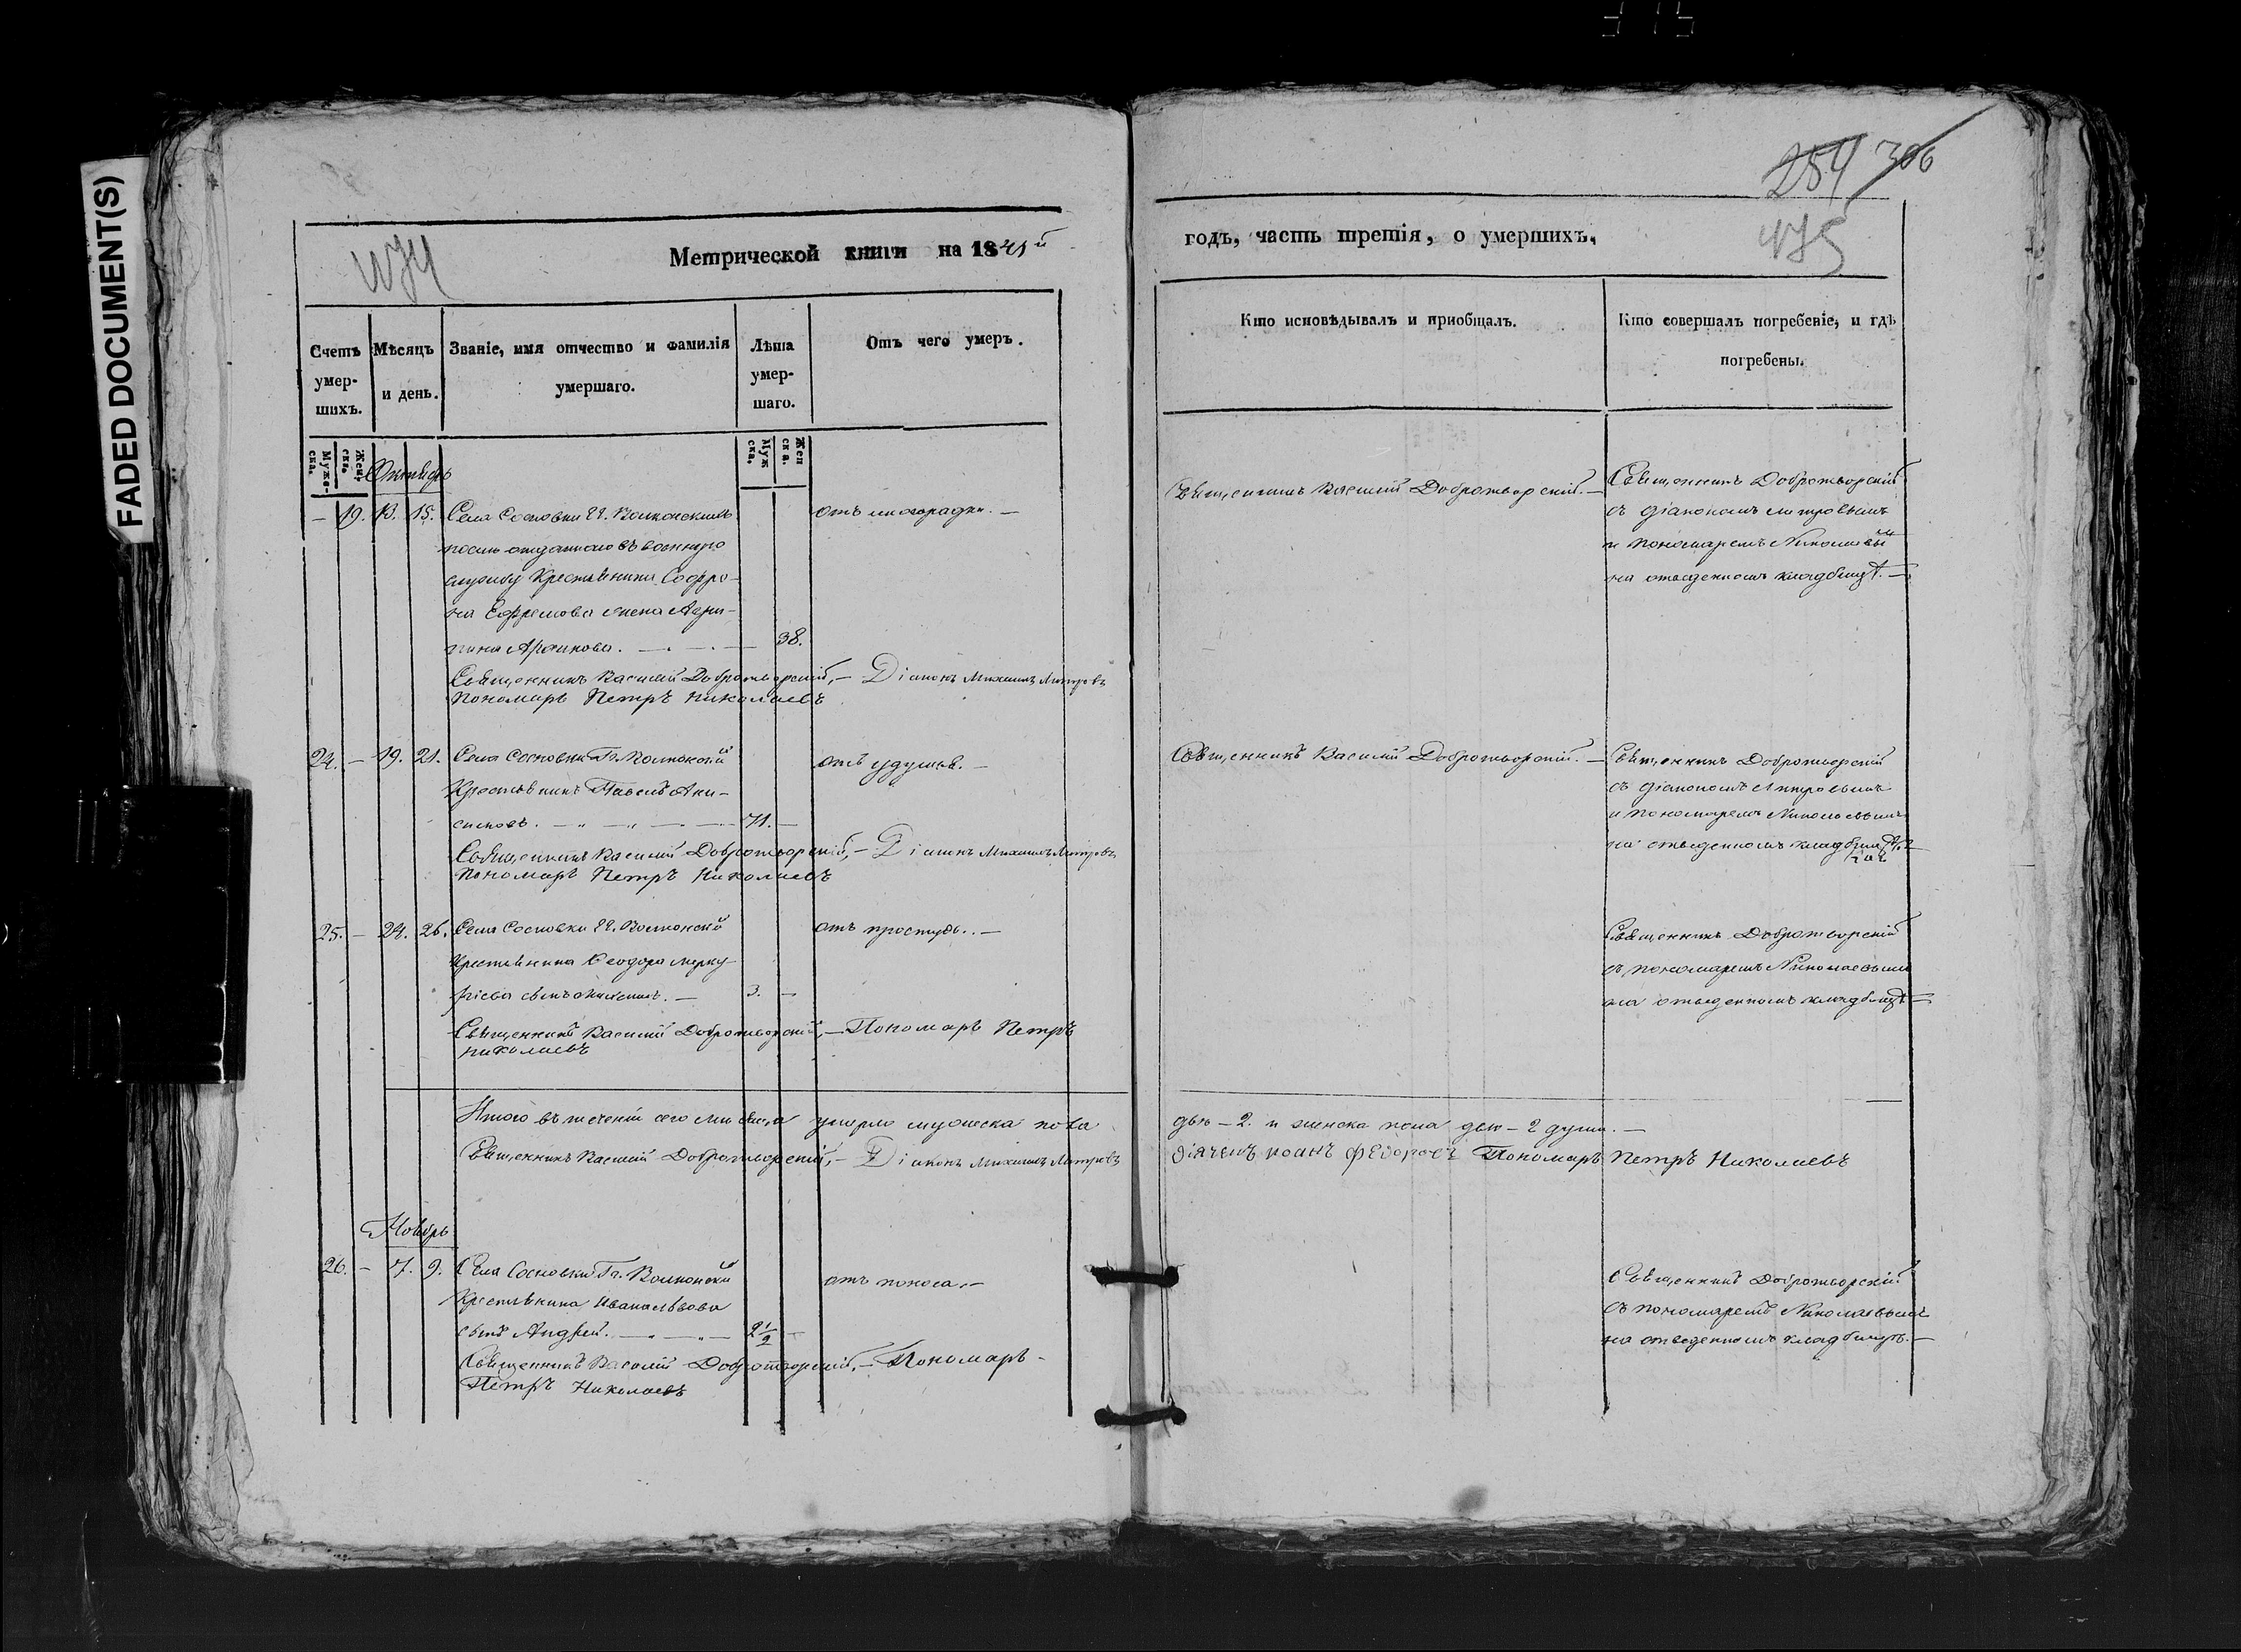 FADED DOCUMENT(S)
254 306
474
475
Метрической книги на 1841й
годъ, часть третія, о умершихъ,
Счетъ умер-
шихъ.
Мѣсяцъ
и день.
Званіе, имя отчество и фамилія
умершаго.
Лѣта
умер-
шаго.
Отъ чего умеръ.
Кто исповѣдывалъ и приобщалъ.
Кто совершалъ погребеніе, и гдѣ
погребены.
Муже-
ска.
Жен-
ска.
Муж
ска.
Жен
ска.
Октябрь
— 19. 13. 15. Села Сосновки Гг. Волконскихъ
отданного въ военную
службу Крестьянина Софро-
на Ефремова жена
38.
отъ лихорадки. —
Священникъ Василій Добротворскій. —
Священникъ Добротворскій
съ діакономъ Митровымъ
и пономаремъ Николаевымъ
на отведенномъ кладбищѣ. —
Священникъ Василій Добротворскій, — Діаконъ Михаилъ Митровъ
Пономарь Петръ Николаевъ
24. — 19. 21. Села Сосновки Гг. Волконскій
Крестьянинъ Павелъ Ани-
симовъ. — 71. —
отъ удушья. —
Священникъ Василій Добротворскій. —
Священникъ Добротворскій
съ діакономъ Митровымъ
и пономаремъ Николаевымъ
на отведенномъ кладбищѣ
Священникъ Василій Добротворскій, — Діаконъ Михаилъ Митровъ
Пономарь Петръ Николаевъ
25. — 24. 26. Села Сосновки Гг. Волконскій
Крестьянина Ѳеодора Мерку-
ріева сынъ 3. —
отъ простуды. —
Священникъ Добротворскій
съ пономаремъ Николаевымъ
на отведенномъ кладбищѣ —
Священникъ Василій Добротворскій, — Пономарь Петръ
Николаевъ
Итого въ теченіи сего мѣсяца умерло мужеска пола
двѣ — 2. и женска пола двѣ — 2 души. —
Священникъ Василій Добротворскій, — Діаконъ Михаилъ Митровъ
Ѳедоровъ Пономарь Петръ Николаевъ
Ноябрь
26. — 7. 9. Села Сосновки Гг. Волконскій
Крестьянина Ивана Львова
сынъ Андрей. — 2½ —
отъ поноса. —
Священникъ Добротворскій
съ пономаремъ Николаевымъ
на отведенномъ кладбищѣ. —
Священникъ Василій Добротворскій, — Пономарь
Петръ Николаевъ